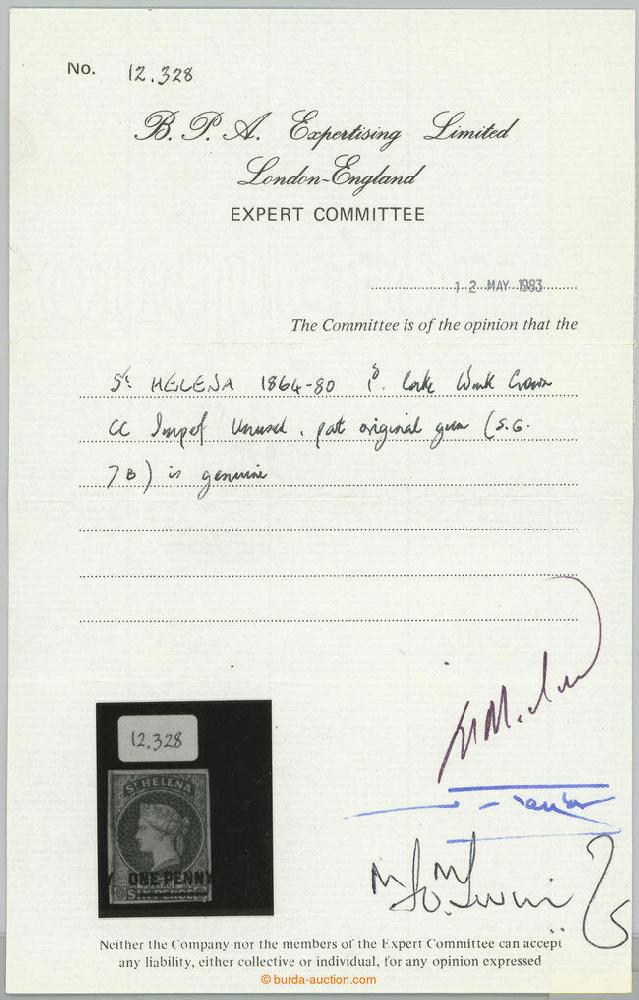 No. 12.328
B. P. A. Expertising Limited
London-England
EXPERT COMMITTEE
12 MAY 1983
The Committee is of the opinion that the
St. HELENA 1864-80 1d. lake Wmk Crown
CC Imperf Unused, part original gum (S.G.
7B) is genuine
12.328
ST HELENA
ONE PENNY
SIX PENCE
Neither the Company nor the members of the Expert Committee can accept
any liability, either collective or individual, for any opinion expressed
© burda-auction.com